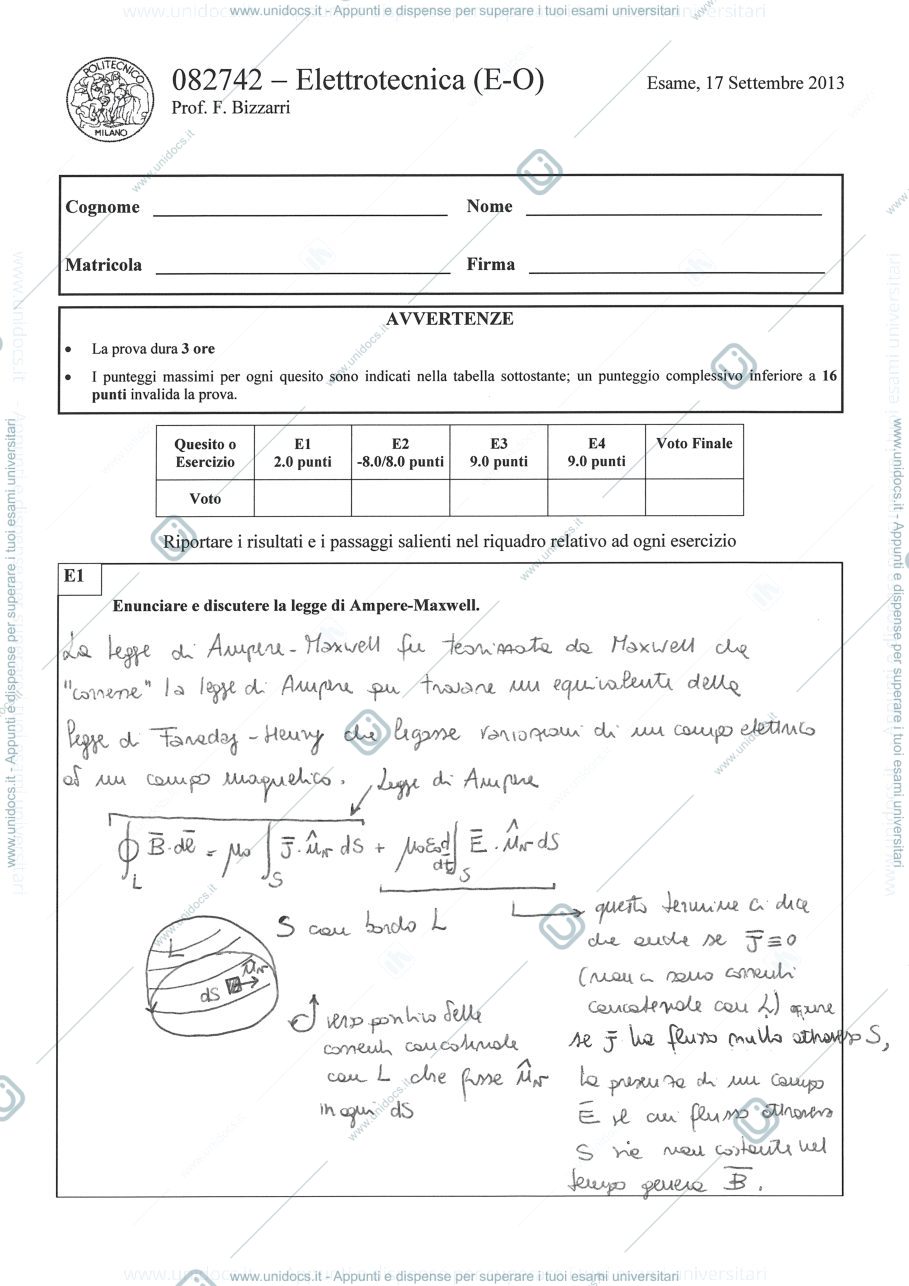 www.unidocs.it - Appunti e dispense per superare i tuoi esami universitari
POLITECNICO
MILANO
082742 – Elettrotecnica (E-O)
Prof. F. Bizzarri
Esame, 17 Settembre 2013
Cognome
Nome
Matricola
Firma
AVVERTENZE
• La prova dura 3 ore
• I punteggi massimi per ogni quesito sono indicati nella tabella sottostante; un punteggio complessivo inferiore a 16
punti invalida la prova.
Quesito o Esercizio E1 2.0 punti E2 -8.0/8.0 punti E3 9.0 punti E4 9.0 punti Voto Finale
Voto
Riportare i risultati e i passaggi salienti nel riquadro relativo ad ogni esercizio
E1
Enunciare e discutere la legge di Ampere-Maxwell.
La legge di Ampere-Maxwell fu teorizzata da Maxwell che
"corresse" la legge di Ampere per trovare un equivalente della
legge di Faraday-Henry che legasse variazioni di un campo elettrico
ad un campo magnetico.
Legge di Ampere
∮_L B̄·dl̄ = μ₀ ∫_S J̄·û_N dS + μ₀ε₀ d/dt ∫_S Ē·û_N dS
S con bordo L
L
dS
û_N
verso positivo delle
correnti concatenate
con L che fisse û_N
in ogni dS
questo termine ci dice
che anche se J̄≡0
(non ci sono correnti
concatenate con L) oppure
se J̄ ha flusso nullo attraverso S,
la presenza di un campo
Ē il cui flusso attraverso
S sia non costante nel
tempo genera B̄.
www.unidocs.it - Appunti e dispense per superare i tuoi esami universitari